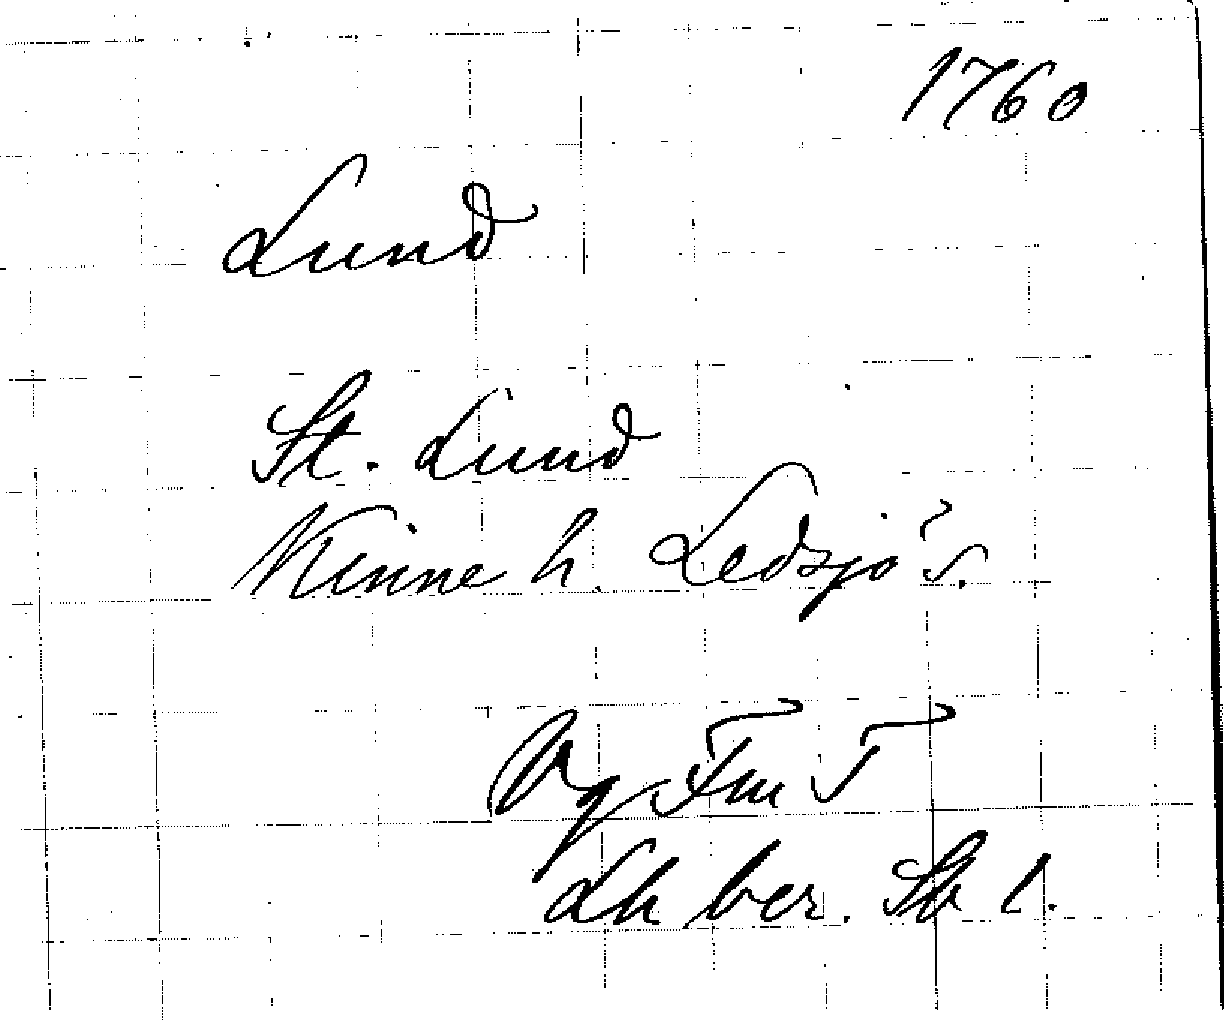 1760
Lund
St. Lund
Kinne h. Ledsjö s.
Vg Fm T
Lh ber. Sb 1.